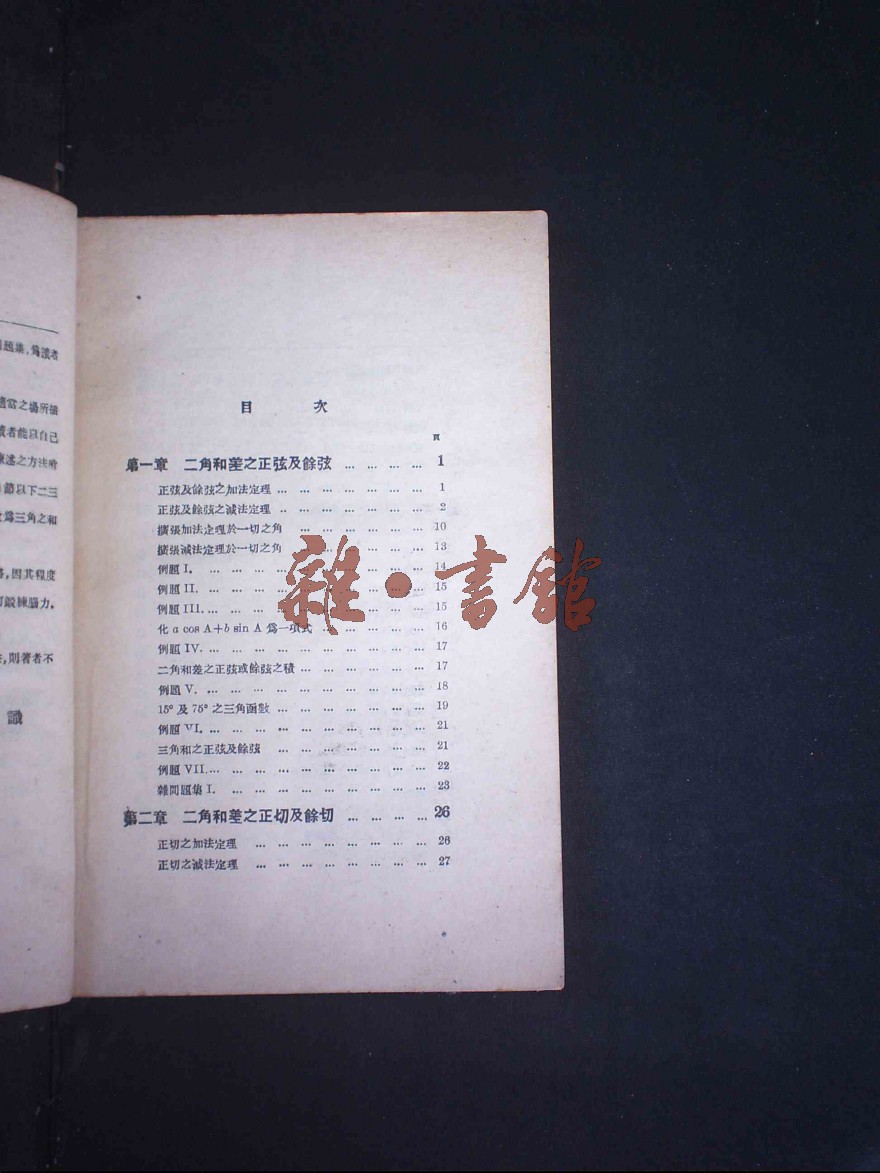 題集,爲讀者
當之場所插
者能以自己
述之方法皆
節以下二三
爲三角之和
,因其程度
鍛練腦力。
,則著者不
識
目 次
頁
第一章 二角和差之正弦及餘弦 … … … … 1
正弦及餘弦之加法定理 … … … … … … … 1
正弦及餘弦之減法定理 … … … … … … … 2
擴張加法定理於一切之角 … … … … … … 10
擴張減法定理於一切之角 … … … … … … 13
例題 I. … … … … … … … … … … 14
例題 II. … … … … … … … … … … 15
例題 III. … … … … … … … … … … 15
化 a cos A+b sin A 爲一項式 … … … … … 16
例題 IV. … … … … … … … … … … 17
二角和差之正弦或餘弦之積 … … … … … … 17
例題 V. … … … … … … … … … … 18
15° 及 75° 之三角函數 … … … … … … … 19
例題 VI. … … … … … … … … … … 21
三角和之正弦及餘弦 … … … … … … … 21
例題 VII. … … … … … … … … … … 22
雜問題集 I. … … … … … … … … … 23
第二章 二角和差之正切及餘切 … … … … 26
正切之加法定理 … … … … … … … … 26
正切之減法定理 … … … … … … … … 27
雜·書館